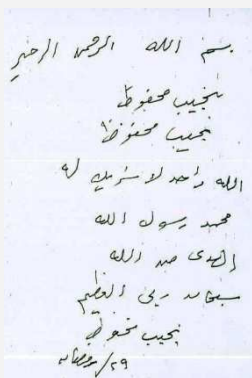 بسم الله الرحمن الرحيم
نجيب محفوظ
نجيب محفوظ
الله واحد لا شريك له
محمد رسول الله
الهدى من الله
سبحان ربي العظيم
نجيب محفوظ
٢٩/رمضان